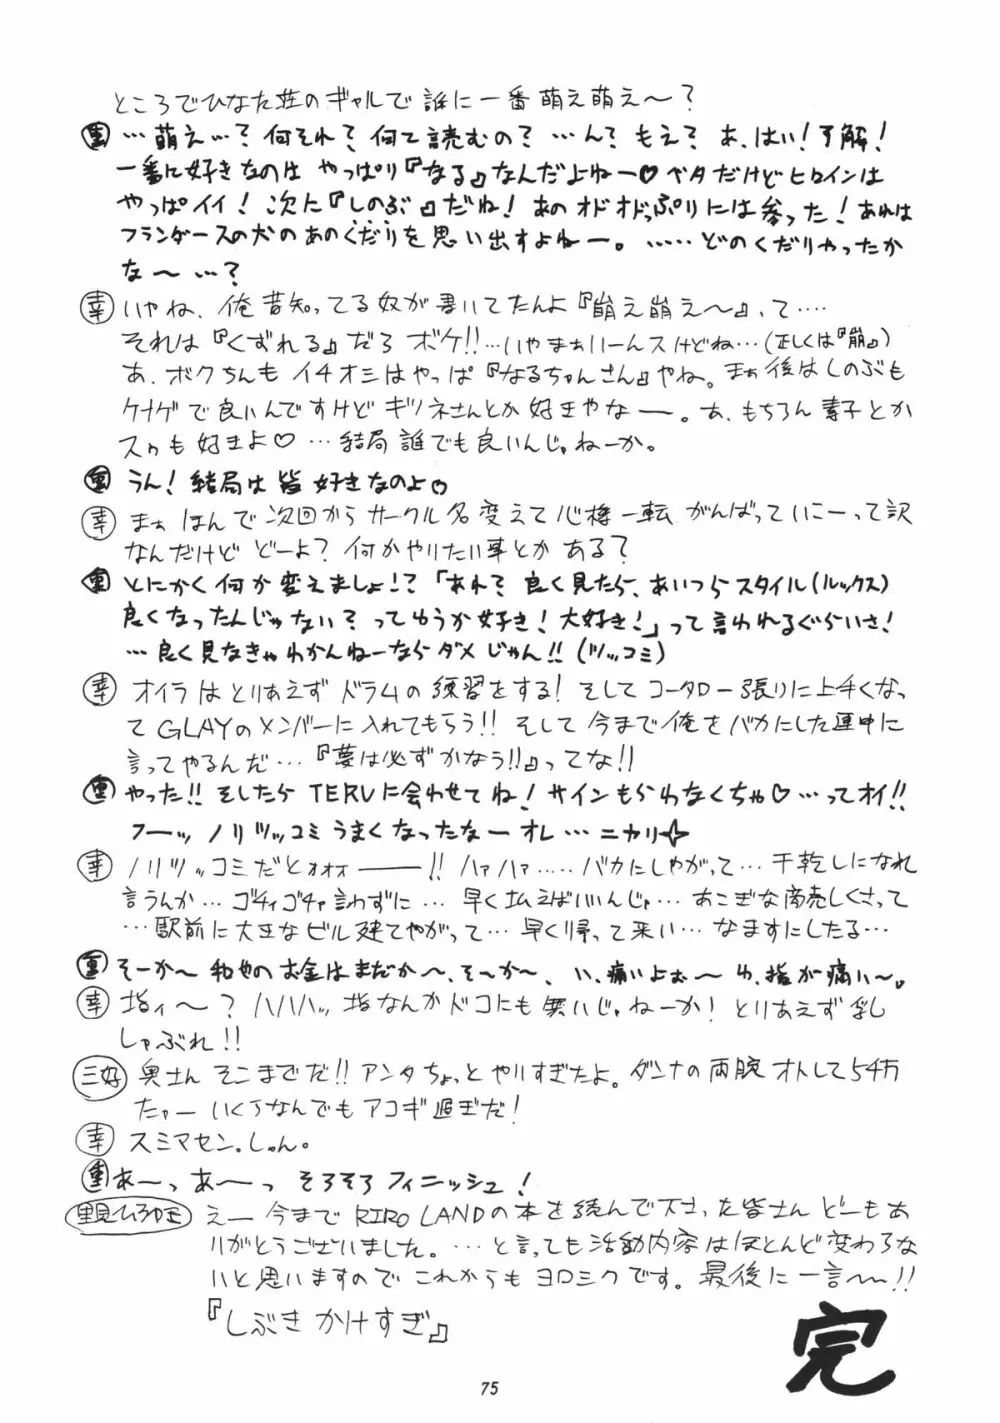 ところでひなた荘のギャルで誰に一番萌え萌え〜?
…萌え…?何それ?何て読むの?…ん?もえ?あ、はい!了解!
一番に好きなのは やっぱり『なる』なんだよねー♡ベタだけどヒロインは
やっぱイイ!次に『しのぶ』だね!あのオドオドっぷりには参った!あれは
フランダースの犬のあのくだりを思い出すよねー。……どのくだりやったか
な〜…?
幸 いやね、俺昔知ってる奴が書いてたんよ『崩え崩え〜』って‥‥
それは『くずれる』だろ ボケ!!…いやまぁいーんスけどね…(正しくは『崩』)
あ、ボクちんも イチオシはやっぱ『なるちゃんさん』やね。まぁ後はしのぶも
ケナゲで良いんですけどキツネさんとか好きやなー。あ、もちろん素子とか
スゥも好きよ♡…結局誰でも良いんじゃねーか。
うん!結局は皆好きなのよ♡
幸 まぁほんで次回からサークル名変えて心機一転がんばっていこーって訳
なんだけど どーよ?何かやりたい事とか ある?
とにかく何か変えましょ!?「あれ?良く見たら、あいつらスタイル(ルックス)
良くなったんじゃない?ってゆうか好き!大好き!」って言われるぐらいさ!
…良く見なきゃわかんねーならダメじゃん!!(ツッコミ)
幸 オイラはとりあえずドラムの練習をする!そしてコータロー張りに上手くなっ
てGLAYのメンバーに入れてもらう!!そして今まで俺をバカにした連中に
言ってやるんだ…『夢は必ずかなう!!』ってな!!
やった!!そしたらTERUに会わせてね!サインもらわなくちゃ♡…ってオイ!!
フーッ ノリツッコミうまくなったなーオレ…ニカリ☆
幸 ノリツッコミだとォォォ――!!ハァハァ‥‥バカにしやがって…干乾しになれ
言うんか…ゴチャゴチャ言わずに…早く払えばいいんじゃ…あこぎな商売しくさって
…駅前に大きなビル建てやがって…早く帰って来い…なますにしたる…
そーか〜 和也のお金はまだか〜、そ〜か〜、い、痛いよぉ〜ゆ、指が痛い〜。
幸 指ィ〜?ハハハッ、指なんかドコにも無いじゃねーか!とりあえず乳
しゃぶれ!!
三好 奥さん そこまでだ!!アンタちょっとやりすぎたよ。ダンナの両腕オトして54万
たァー いくらなんでもアコギ過ぎだ!
幸 スミマセン。しゅん。
あーっ あ〜っ そろそろフィニッシュ!
里見ひろゆき えー 今までRIRO LANDの本を読んで下さった皆さん どーもあ
りがとうございました。…と言っても活動内容はほとんど変わらな
いと思いますので これからもヨロシクです。最後に一言〜!!
『しぶき かけすぎ』
完
75